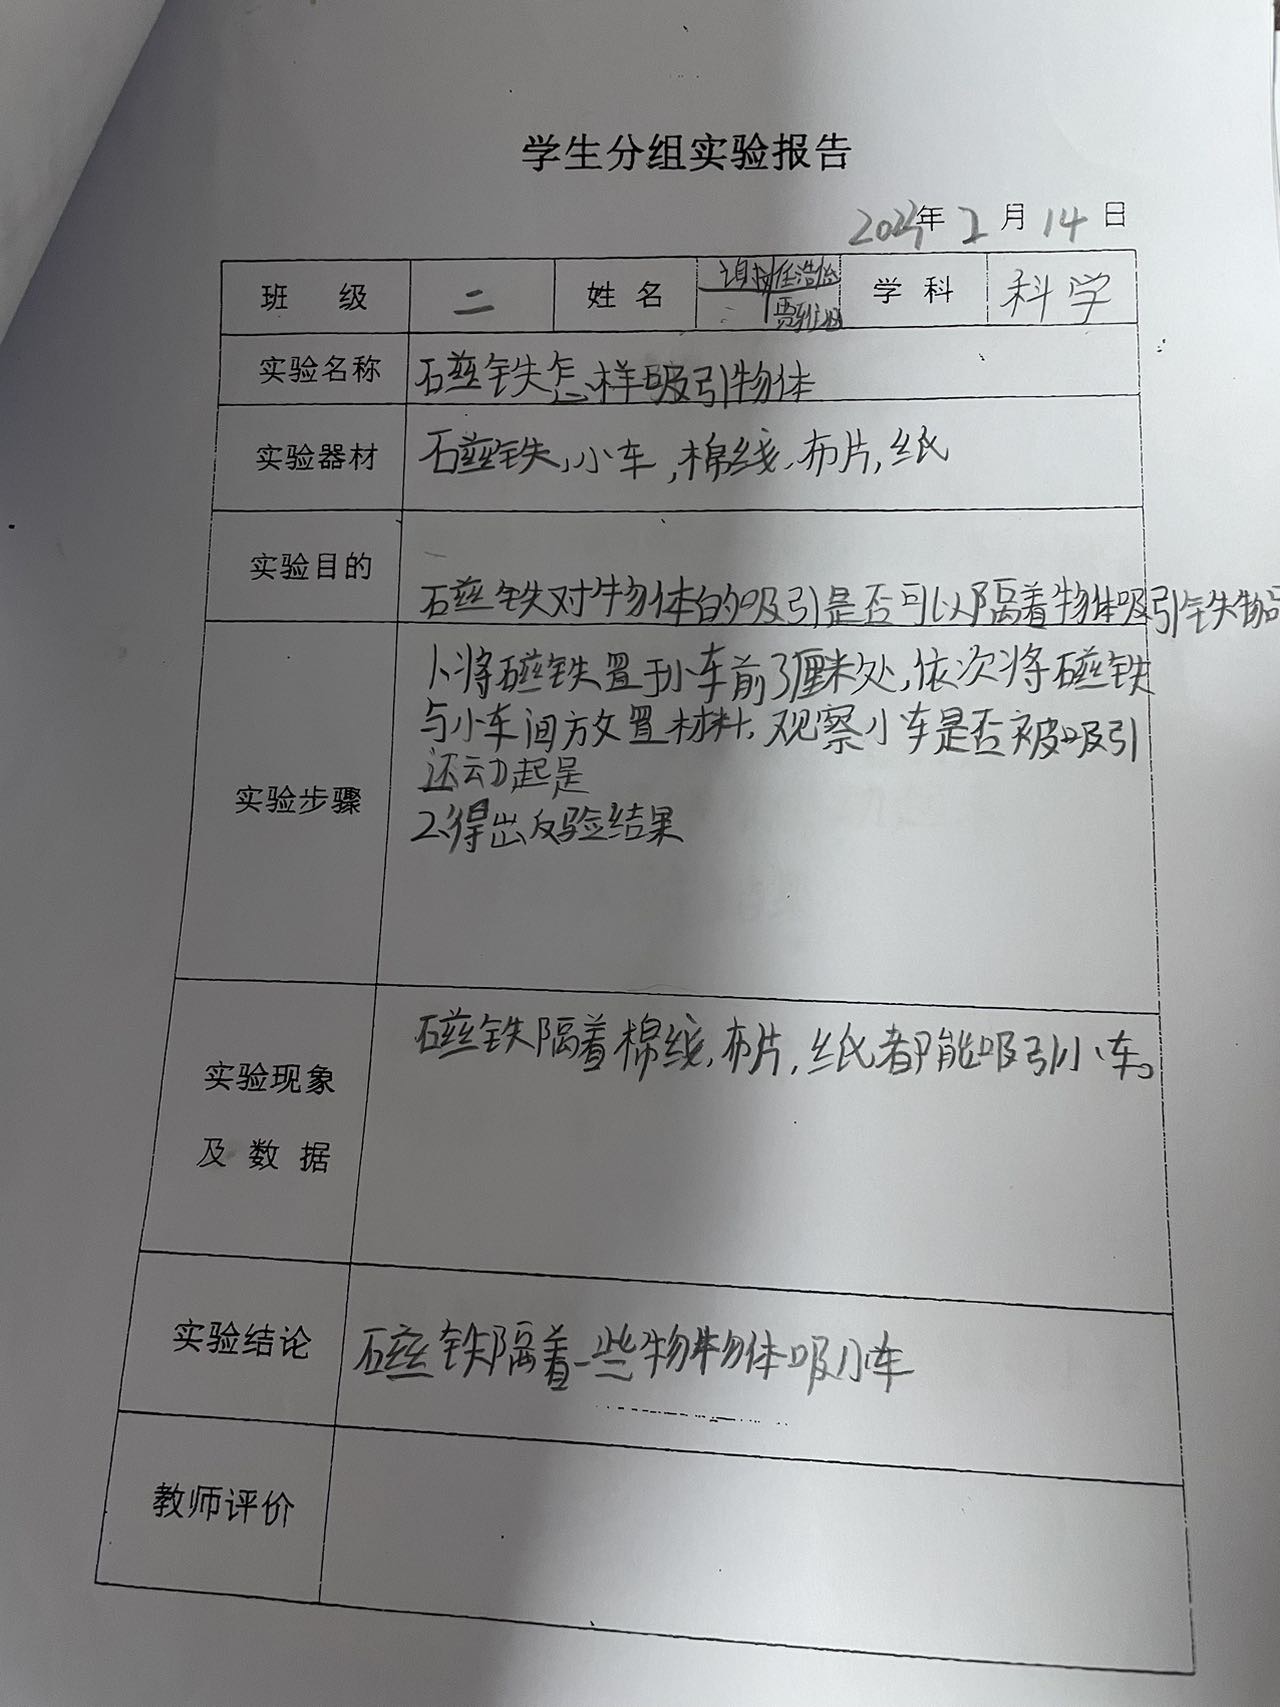 学生分组实验报告
年 2 月 14 日
班 级 二 姓 名 学 科 科学
实验名称 磁铁怎样吸引物体
实验器材 磁铁,小车,棉线,布片,纸
实验目的 磁铁对物体的吸引是否可以隔着物体吸引铁物品
实验步骤 1、将磁铁置于小车前3厘米处,依次将磁铁
与小车间方放置材料,观察小车是否被吸引
还动起是
2、得出反验结果
实验现象 磁铁隔着棉线,布片,纸都能吸引小车。
及 数 据
实验结论 磁铁隔着一些物物体吸小车
教师评价